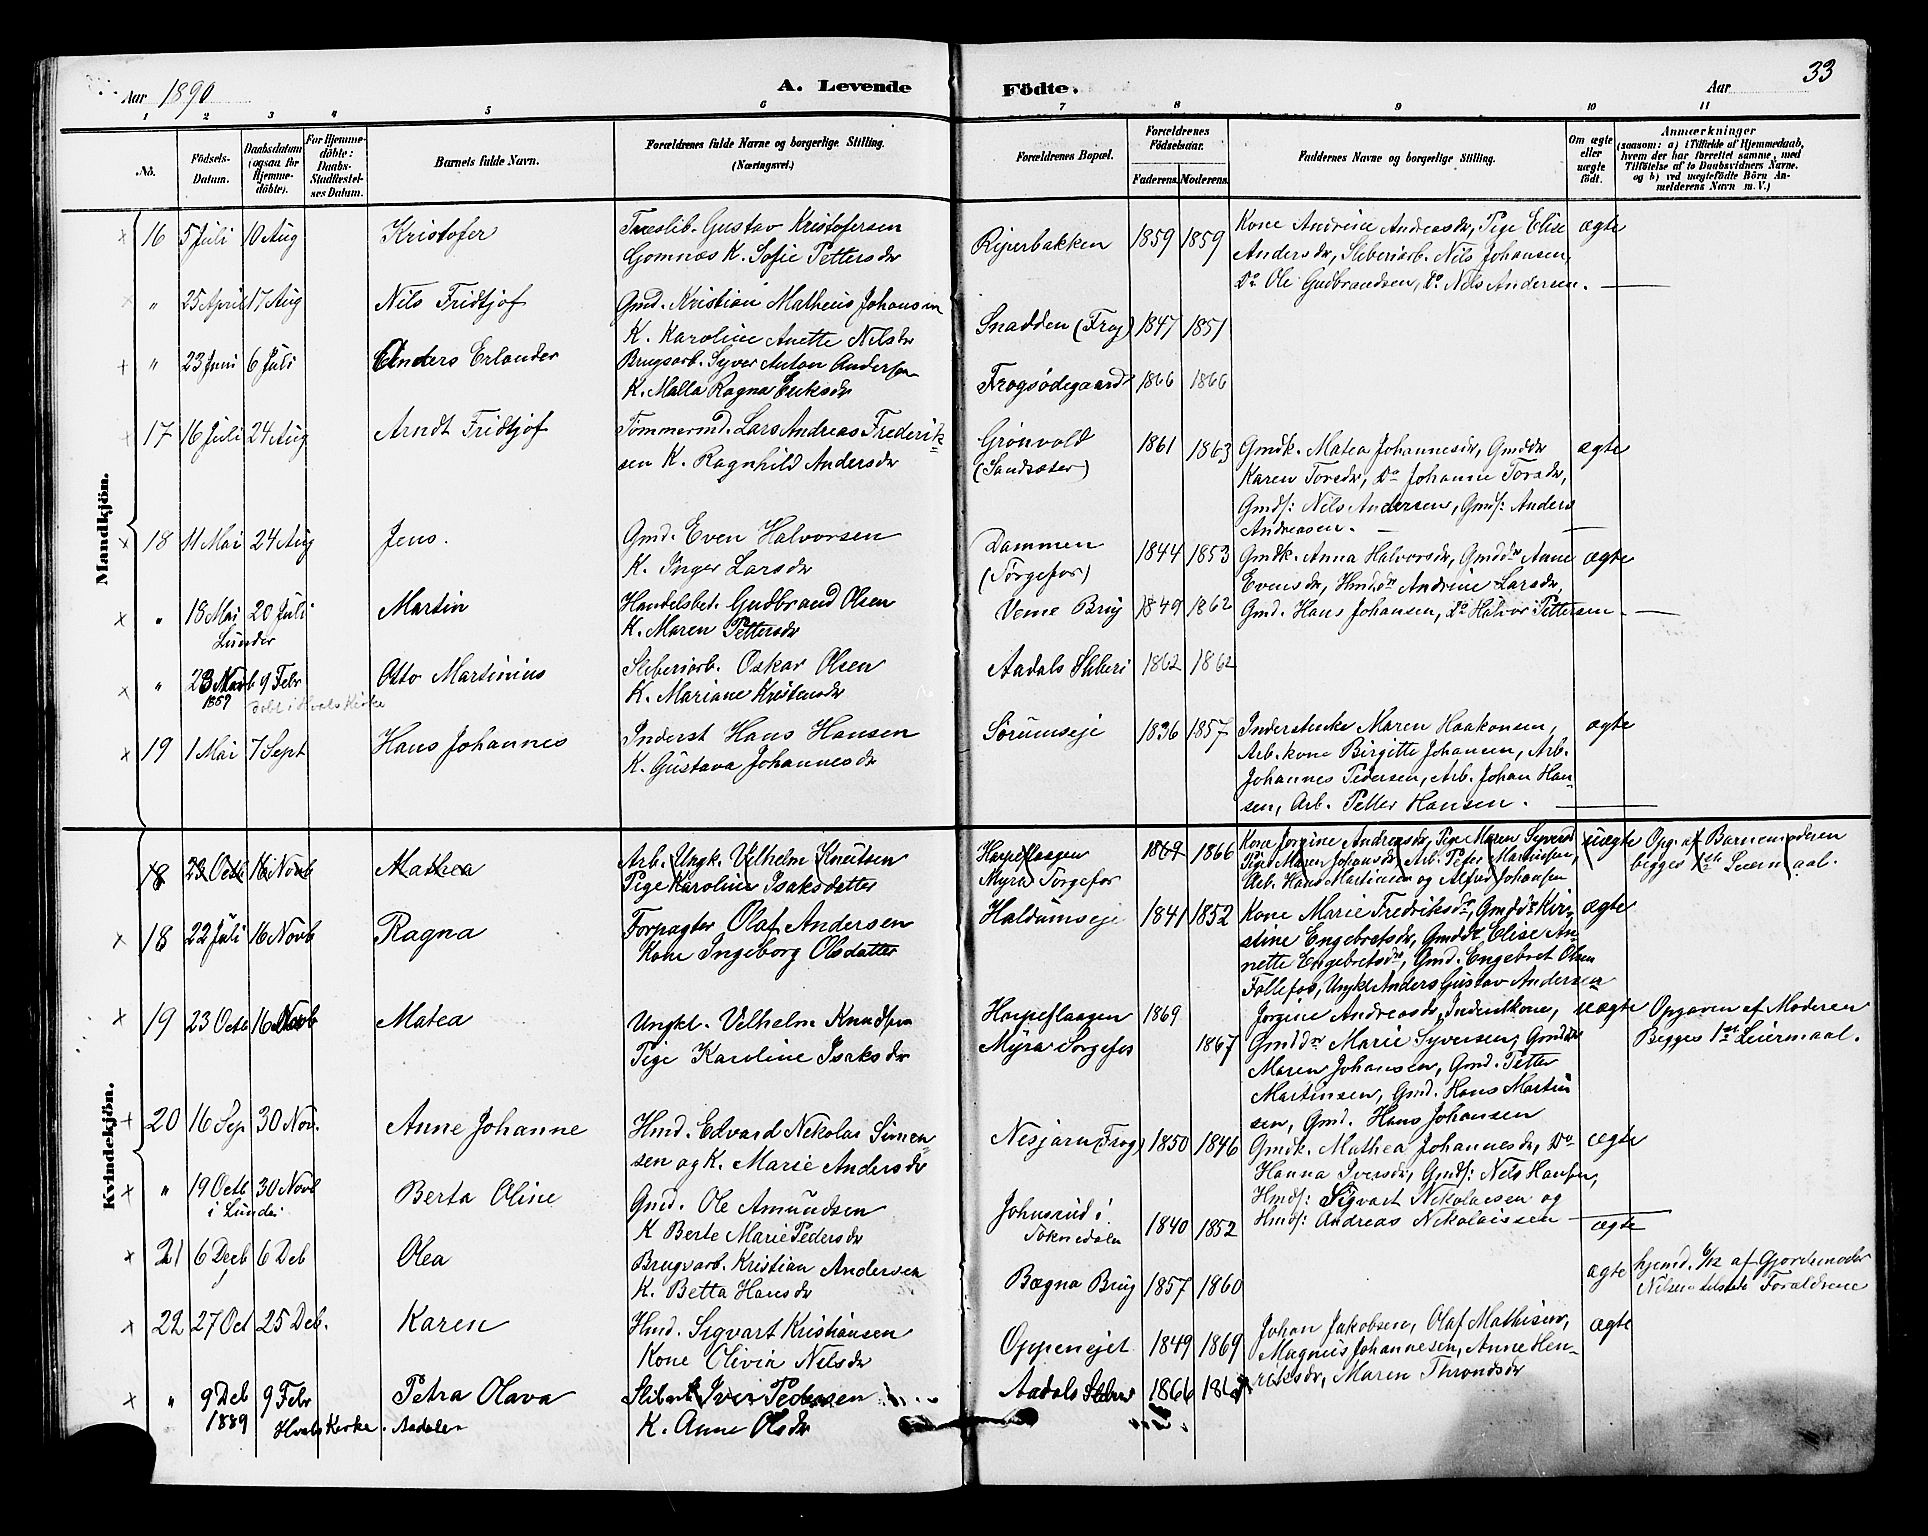 Aar 1890
A. Levende
Födte.
Aar
33
1 2 3 4 5 6 7 8 9 10 11
No.
Födsels-Datum.
Daabsdatum (ogsaa for Hjemme-döbte).
For Hjemme-döbte: Daabs-Stadfæstelses Datum.
Barnets fulde Navn.
Forældrenes fulde Navne og borgerlige Stilling. (Næringsvei.)
Forældrenes Bopæl.
Forældrenes Födselsaar.
Faderens. Moderens.
Faddernes Navne og borgerlige Stilling.
Om ægte eller uægte födt.
Anmærkninger
(saasom: a) i Tilfælde af Hjemmedaab, hvem der har forrettet samme, med Tilföielse af to Daabsvidners Navne. og b) ved uægtefödte Börn Anmelderens Navn m. V.)
Mandkjön.
16 5 Juli 10 Aug Kristofer
Gustav Kristofersen
Gomnæs K. Sofie Pettersdr
Riperbakken 1859 1859
Kone Andrine Andreasdr, Pige Elise
Andersdr, Sliberiarb. Nils Johansen,
Do Ole Gudbrandsen, Do Nils Andersen. —
ægte
" 25 April 17 Aug Nils Fridtjof
Gmd. Kristian Matheus Johansen
K. Karoline Anette Nilsdr
Snadden (Frog) 1847 1851
" 23 Juni 6 Juli Anders Erlander
Brugsarb. Syver Anton Andersen
K. Malla Ragna Eriksdr
Frogsödegaard 1866 1866
17 16 Juli 24 Aug Arndt Fridtjof
Tömmermd. Lars Andreas Frederik-
sen K. Ragnhild Andersdr
Grönvold
(Sandsæter)
1861 1863
Gmdk. Matea Johannesdr, Gmddr
Karen Toresdr, Do Johanne Toresdr,
Gmds: Nils Andersen, Gmds: Anders
Andreasen. —
ægte
18 11 Mai 24 Aug Jens.
Gmd. Even Halvorsen
K. Inger Larsdr
Dammen
(Sörgefos)
1844 1853
Gmdk. Anna Halvorsdr, Gmddr Anne
Evensdr, Hmddr Andrine Larsdr,
Gmd. Hans Johansen, Do Halvor Pettersen —
ægte
" 18 Mai 20 Juli Martin
Lunder
Handelsbet. Gudbrand Olsen
K. Maren Pettersdr
Veme Brug 1849 1862
" 23 Novb 9 Febr Otto Martinius
1889 döbt i Hvals Kirke
Sliberiarb. Oskar Olsen
K. Mariane Kristensdr
Aadals Sliberi 1862 1862
19 1 Mai 7 Sept Hans Johannes
Inderst Hans Hansen
K. Gustava Johannesdr
Sörumseje 1836 1857
Maren Haakonsen,
Arb. kone Birgitte Johansen, Arb.
Johannes Pedersen, Arb. Johan Han-
sen, Arb. Petter Hansen. —
ægte
Kvindekjön.
18 23 Octb 16 Novb Mathea
Arb. Ungk. Vilhelm Knutsen
Pige Karoline Isaksdatter
Harpeflaagen
Myra Sörgefos
1869 1866
Kone Jorgine Andreasdr, Pige Maren Syversd
Pige Maren Johansdr, Arb. Peter Martinsen,
Arb. Hans Martinsen og Alfred Johansen
uægte
Opg. af Barnemoderen
begges 1ste Leiermaal.
18 22 Juli 16 Novb Ragna
Forpagter Olaf Andersen
Kone Ingeborg Olsdatter
Haldumseje 1841 1852
Kone Marie Fredriksdr, Gmddr Kiri-
stine Engebretsdr, Gmddr Elise An-
nette Engebretsdr, Gmd. Engebret Olsen
Follefos, Ungkl Anders Gustav Andersen
ægte
19 23 Octb 16 Novb Matea
Ungkl. Vilhelm Knudsen
Pige Karoline Isaksdr
Harpeflaagen 1869
Myra Sörgefos 1867
Jorgine Andreasdr, Inderstkone,
Gmddr Marie Syversen, Gmddr
Maren Johansen, Gmd. Petter
Martinsen, Gmd. Hans Martin
sen, Gmd. Hans Johansen
uægte
Opgaven af Moderen
Begges 1ste Leiermaal.
20 16 Sep 30 Nov. Anne Johanne
Hmd. Edvard Nikolai Simen
sen og K. Marie Andersdr
Nesjarn (Frog) 1850 1846
Gmdk. Mathea Johannesdr, Do
Hanna Iversdr, Gmds: Nils Hansen,
Hmds: Sigvart Nikolaisen og
Hmds: Andreas Nikolaissen —
ægte
" 19 Octb 30 Novb Berta Oline
i Lunder
Gmd. Ole Amundsen
K Berte Marie Pedersdr
Johnsrud i
Soknedalen
1840 1852
ægte
21 6 Decb 6 Deb Olea
Brugsarb. Kristian Andersen
K. Betta Hansdr
Bægna Brug 1857 1860
ægte
hjemd. 6/12 af Gjordemoder
Nilsen tilstede Forældrene
22 27 Oct 25 Deb. Karen
Hmd. Sigvart Kristiansen
Kone Olivia Nilsdr
Oppenejet 1849 1869
Johan Jakobsen, Olaf Mathisen,
Magnus Johannesen, Anne Hen-
riksdr, Maren Throndsdr
ægte
" 9 Deb 9 Febr Petra Olava
1889 Hvals Kirke. Aadalen
Iver Pedersen
K. Anne Olsdr
Aadals 1866